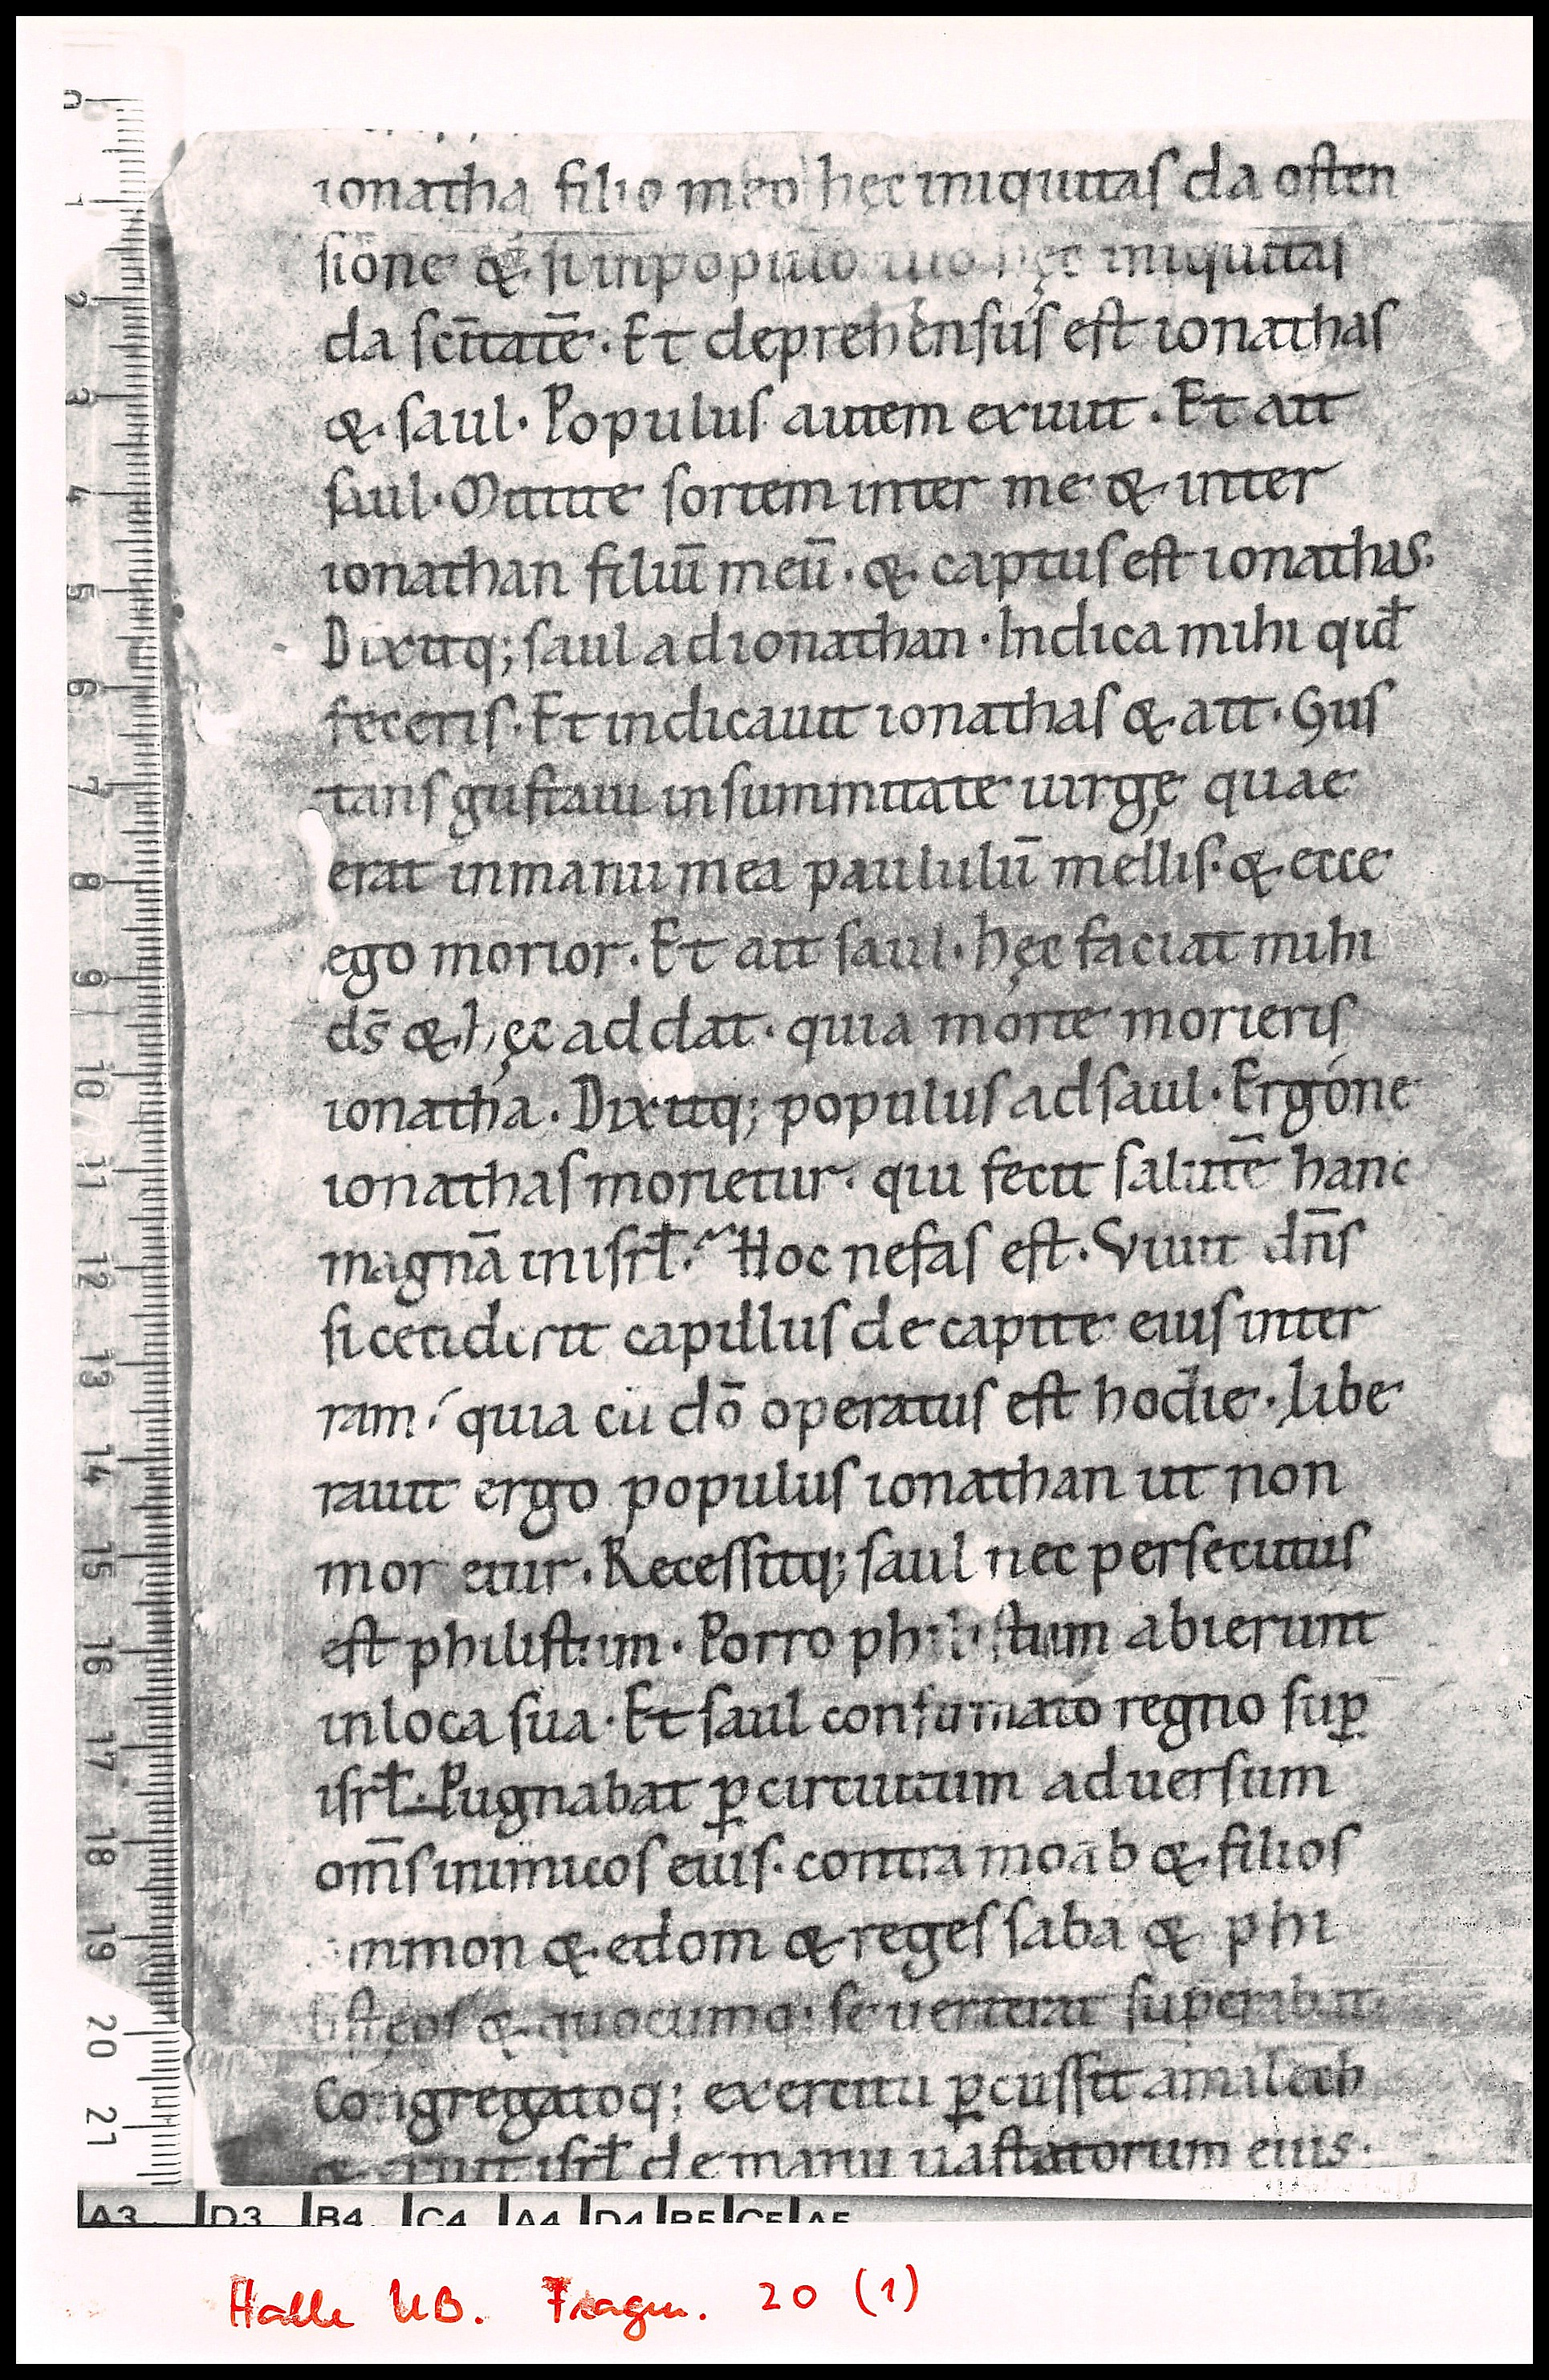 ionatha filio meo hęc iniquitas da osten
sione & si in populo tuo hęc iniquitas
da scītatē. Et deprehensus est ionathas
& saul. Populus autem exiuit. Et ait
saul. Mittite sortem inter me & inter
ionathan filiū meū. & captus est ionathas.
Dixitq; saul ad ionathan. Indica mihi qid̄
feceris. Et indicauit ionathas & ait. Gus
tans gustaui in summitate uirgę quae
erat in manu mea paululū mellis. & ecce
ego morior. Et ait saul. hęc faciat mihi
ds̄ & hęc addat. quia morte morieris
ionatha. Dixitq; populus ad saul. Ergone
ionathas morietur. qui fecit salutē hanc
magnā in isrł. Hoc nefas est. Viuit dn̄s
si ceciderit capillus de capite eius inter
ram. quia cū dō operatus est hodie. Libe
rauit ergo populus ionathan ut non
mor etur. Recessitq; saul nec persecutus
est philistiim. Porro philistiim abierunt
in loca sua. Et saul confirmato regno sup̲
isrł. Pugnabat p̲ circuitum aduersum
om̄s inimicos eius. contra moab & filios
ammon & edom & reges saba & phi
listęos & quocumq; se uerterat superabat
Congregatoq; exercitu p̲cussit amalech
& eruit isrł de manu uastatorum eius.
0 1 2 3 4 5 6 7 8 9 10 11 12 13 14 15 16 17 18 19 20 21
A3 D3 B4 C4 A4 D4 B5 C5 A5
Halle UB. Fragm. 20 (1)